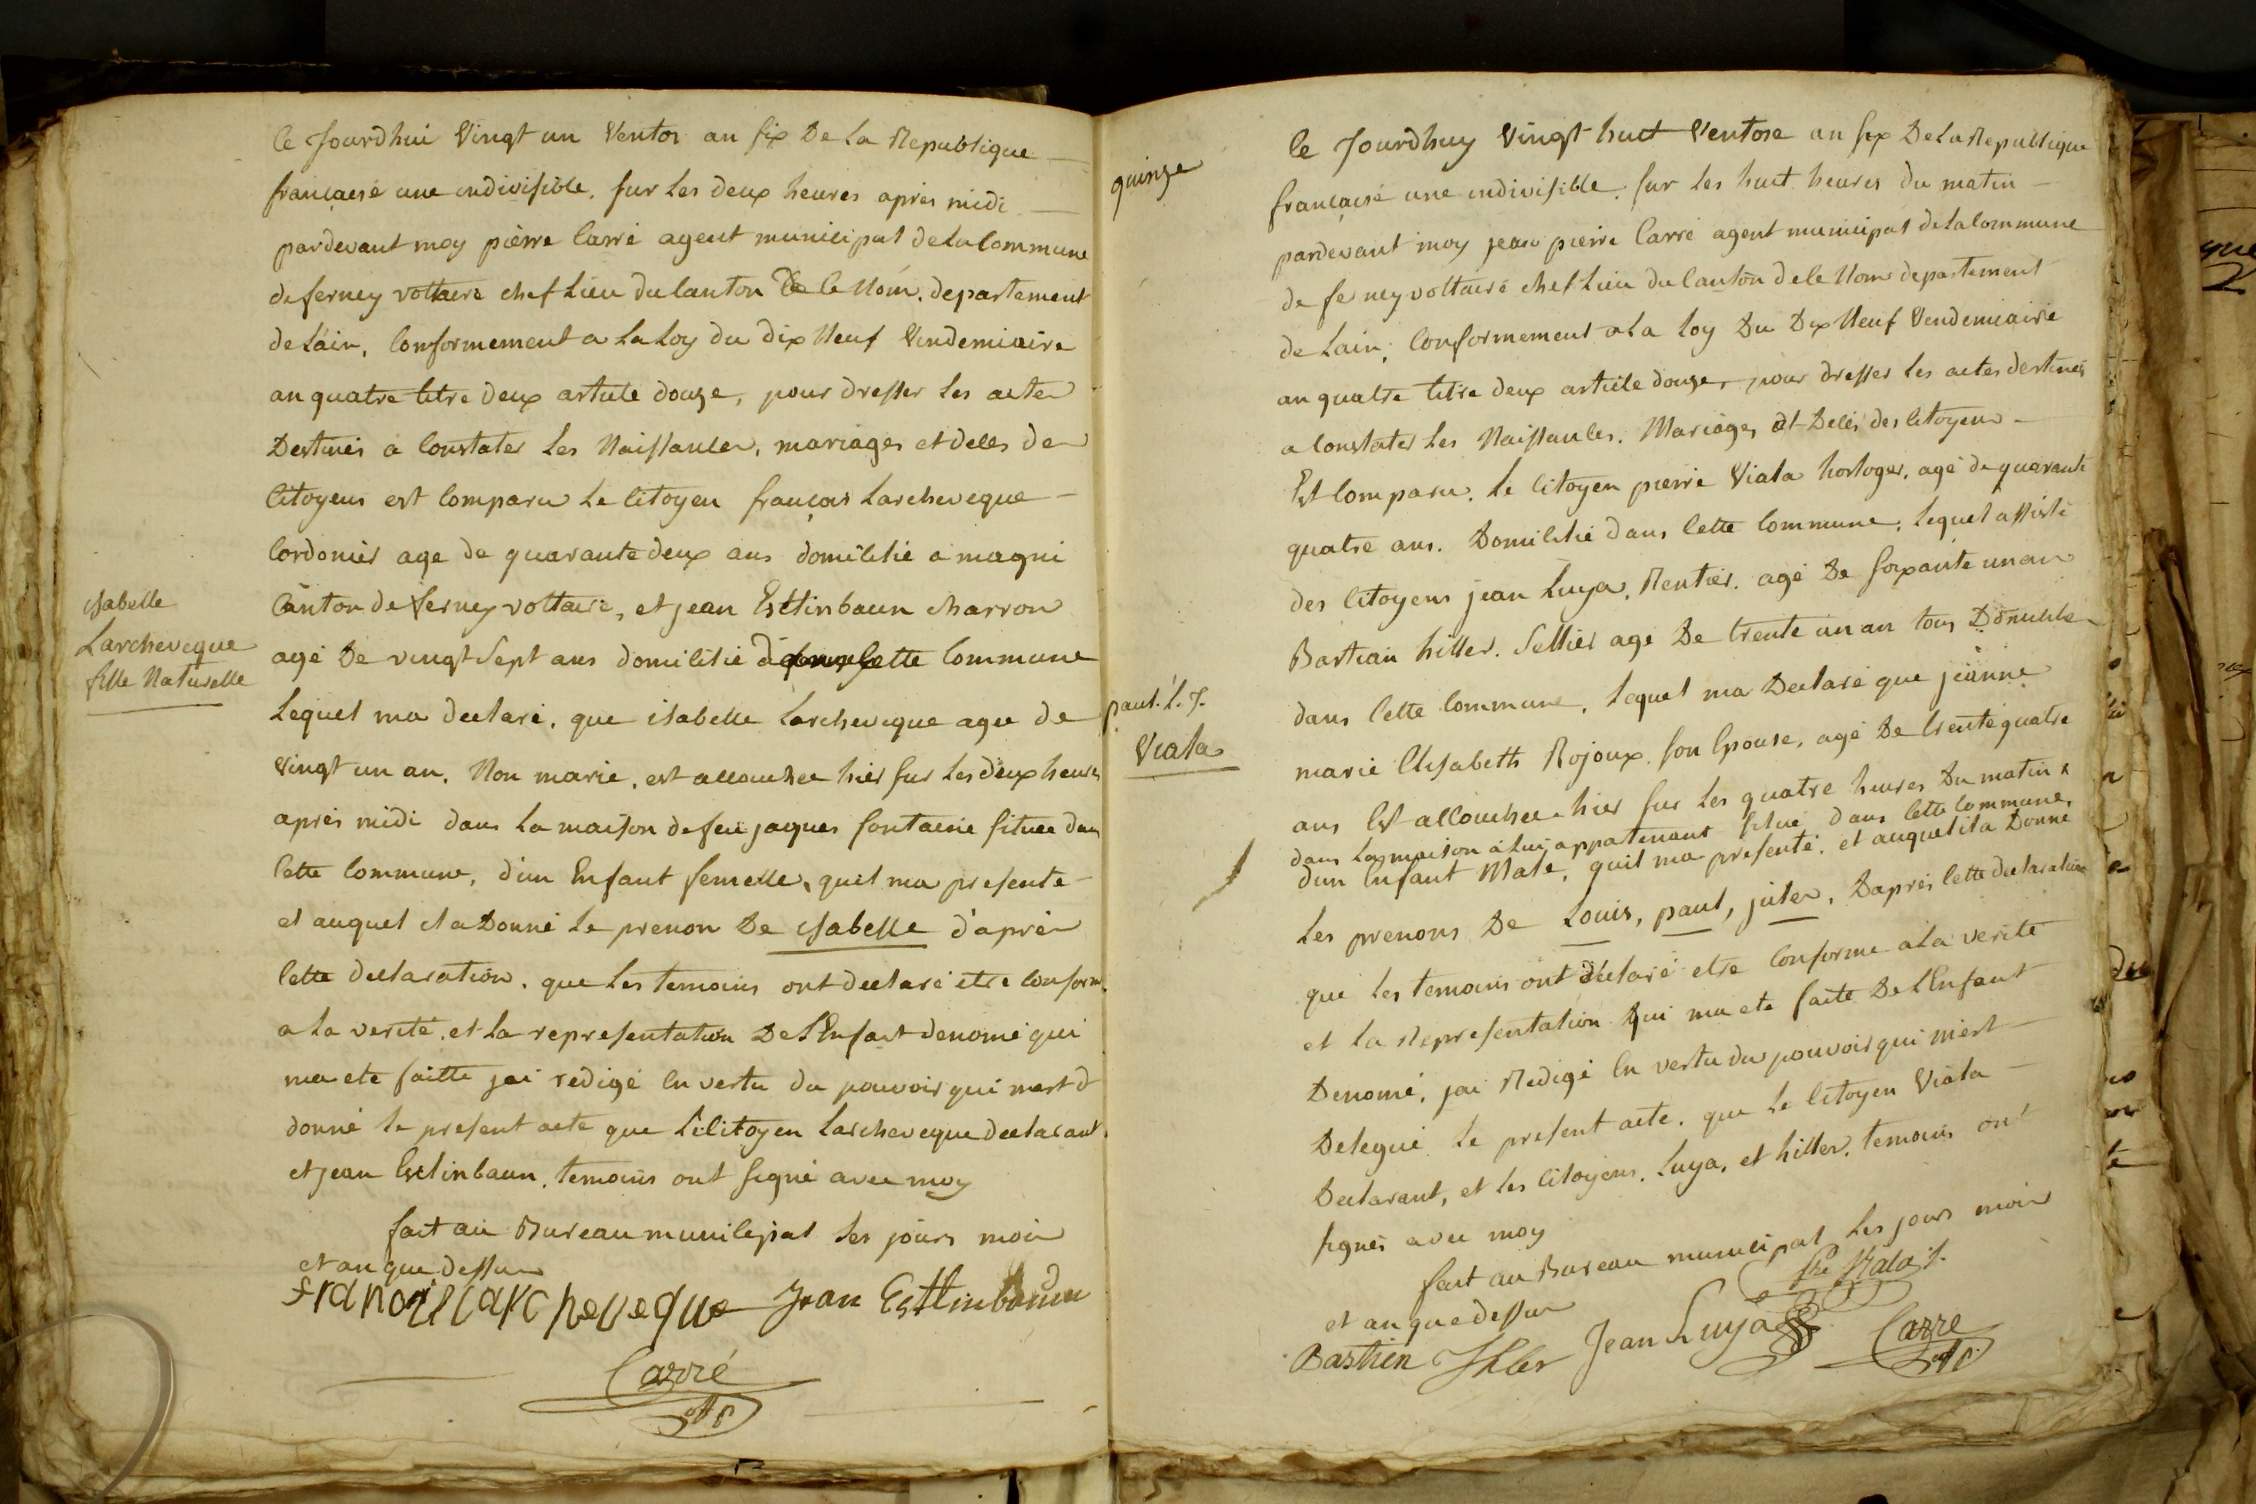 Ce Jourdhui Vingt un Ventos an six De La Republique
francaise une indivisible. sur Les deux heures apres midi
pardevant moy pierre Carré agent municipal de La Commune
de ferney voltaire chef Lieu du Canton De Ce Nom. departement
de Lain, Conformement a La Loy du dix Neuf Vendemiaire
an quatre titre Deux article douze, pour dresser Les actes
Destinés a Constater Les Naissances, mariages et deces de
Citoyens est Comparu Le Citoyen françois Larcheveque
Cordonier age de quarante deux ans domicilié a magni
Canton de ferney voltaire, et jean Estlinbaun charron
agé De vingt Sept ans domicilié Cette Commune
Isabelle
Larcheveque
fille Naturelle
Lequel ma declaré, que isabelle Larcheveque agee de
Vingt un an, Non marié, est accouchee hier sur Les deux heures
apres midi dans La maison de feu jaques fontaine situee dans
Cette Commune, d'un Enfant femelle, quil ma presente
et auquel il a Donné Le prenon De isabelle d'après
Cette declaration, que Les temoins ont declaré etre Conform
a La verité, et La representation De L'Enfant denomé qui
ma ete faitte jai redigé En vertu du pouvoir qui mest d
donné le present acte que Le Citoyen Larcheveque declarant
et jean Estlinbaun, temoins ont signé avec moy
fait au Bureau municipal Les jours mois
et an que dessus
francois larcheveque Jean Estlinbaum
Carré
quinze
paul. L. J.
Viala
Ce Jourdhuy Vingt huit Ventose an six De La Republique
francaise une indivisible. sur Les huit heures du matin
pardevant moy jean pierre Carré agent municipal de La Commune
de ferney voltaire chef Lieu du Canton de Ce Nom departement
de Lain, Conformement a La Loy Du Dix Neuf Vendemiaire
an quatre titre deux article douze, pour dresser Les actes destinés
a Constater Les Naissances. Mariages et Deces des Citoyens
Est Comparu. Le Citoyen pierre Viala horloger, agé de quarante
quatre ans. Domicilié dans Cette Commune, Lequel assisté
des Citoyens jean Luya, Rentier. agé De soixante un an
Bastian hiller. Sellier age De trente un an tous Domicilie
dans Cette Commune, Lequel ma Declaré que jeanne
marie Elisabeth Rojoux son Epouse, agé De trente quatre
ans Est accouchee hier sur Les quatre heures Du matin x
dans La maison a Lui appartenant situé dans Cette Commune,
dun Enfant Male, quil ma presenté, et auquel il a Donné
Les prenons De Louis, paul, jules, Dapres Cette declaration
que Les temoins ont declaré etre Conforme a La verité
et La Representation Qui ma ete faite De L'Enfant
Denomé, jai Redigé En vertu du pouvoir qui mest
Delegué Le present acte. que Le Citoyen Viala
Declarant, et Les Citoyens, Luya, et hiller, temoins ont
signés avec moy
fait au Bureau municipal Les jours mois
et an que dessus
Pre Viala
Bastien Jean Luya Carré